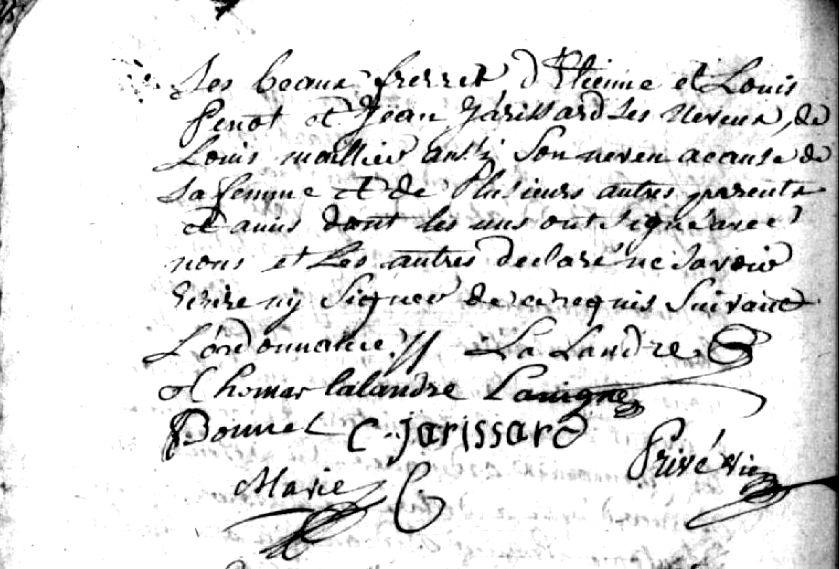 Ses beaux frerret d'Etienne et Louis
Penot et Jean Jarissard Ses Neveux, de
Louis maillier aussi Son neveu a cause de
Sa femme et de Plusieurs autres parents
et amis dont les uns ont signé avec
nous et Les autres declaré ne Savoir
Ecrire ny Signer de ce requis Suivant
L'ordonnance. // La Landre
Thomas lalandre Lavigne
Bonnet C. jarissard
Privé vic
Marie